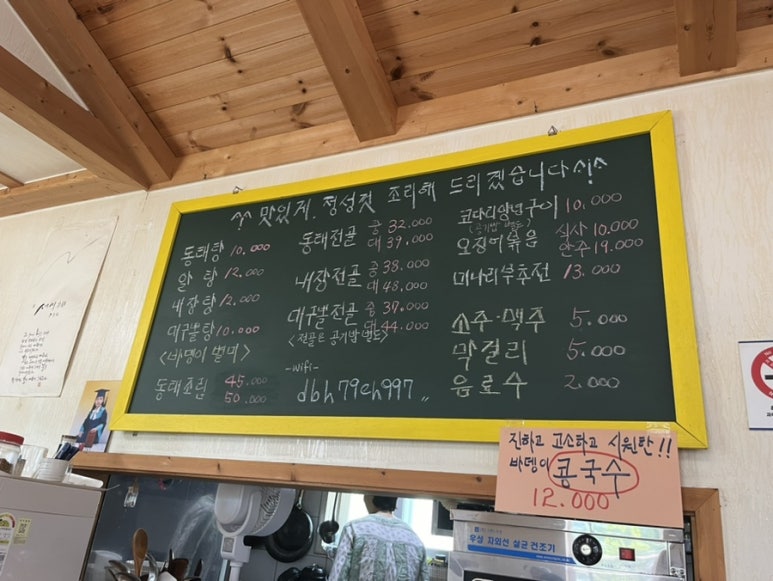 ^^ 맛있게. 정성껏 조리해 드리겠습니다^!^
동태탕 10.000
알탕 12.000
내장탕 12.000
대구뽈탕 10.000
<바뎅이 별미>
동태조림 45.000
50.000
동태전골 중 32.000
대 39.000
내장전골 중 38.000
대 48,000
대구뽈전골 중 37.000
대 44.000
<전골은 공기밥 별도>
-Wifi-
dbh79ch997
코다리양념구이 10,000
(공기밥 별도)
오징어볶음 식사 10.000
안주 19.000
미나리부추전 13,000
소주·맥주 5.000
막걸리 5.000
음료수 2.000
진하고 고소하고 시원한!!
바뎅이 콩국수
12.000
우성 자외선 살균 건조기